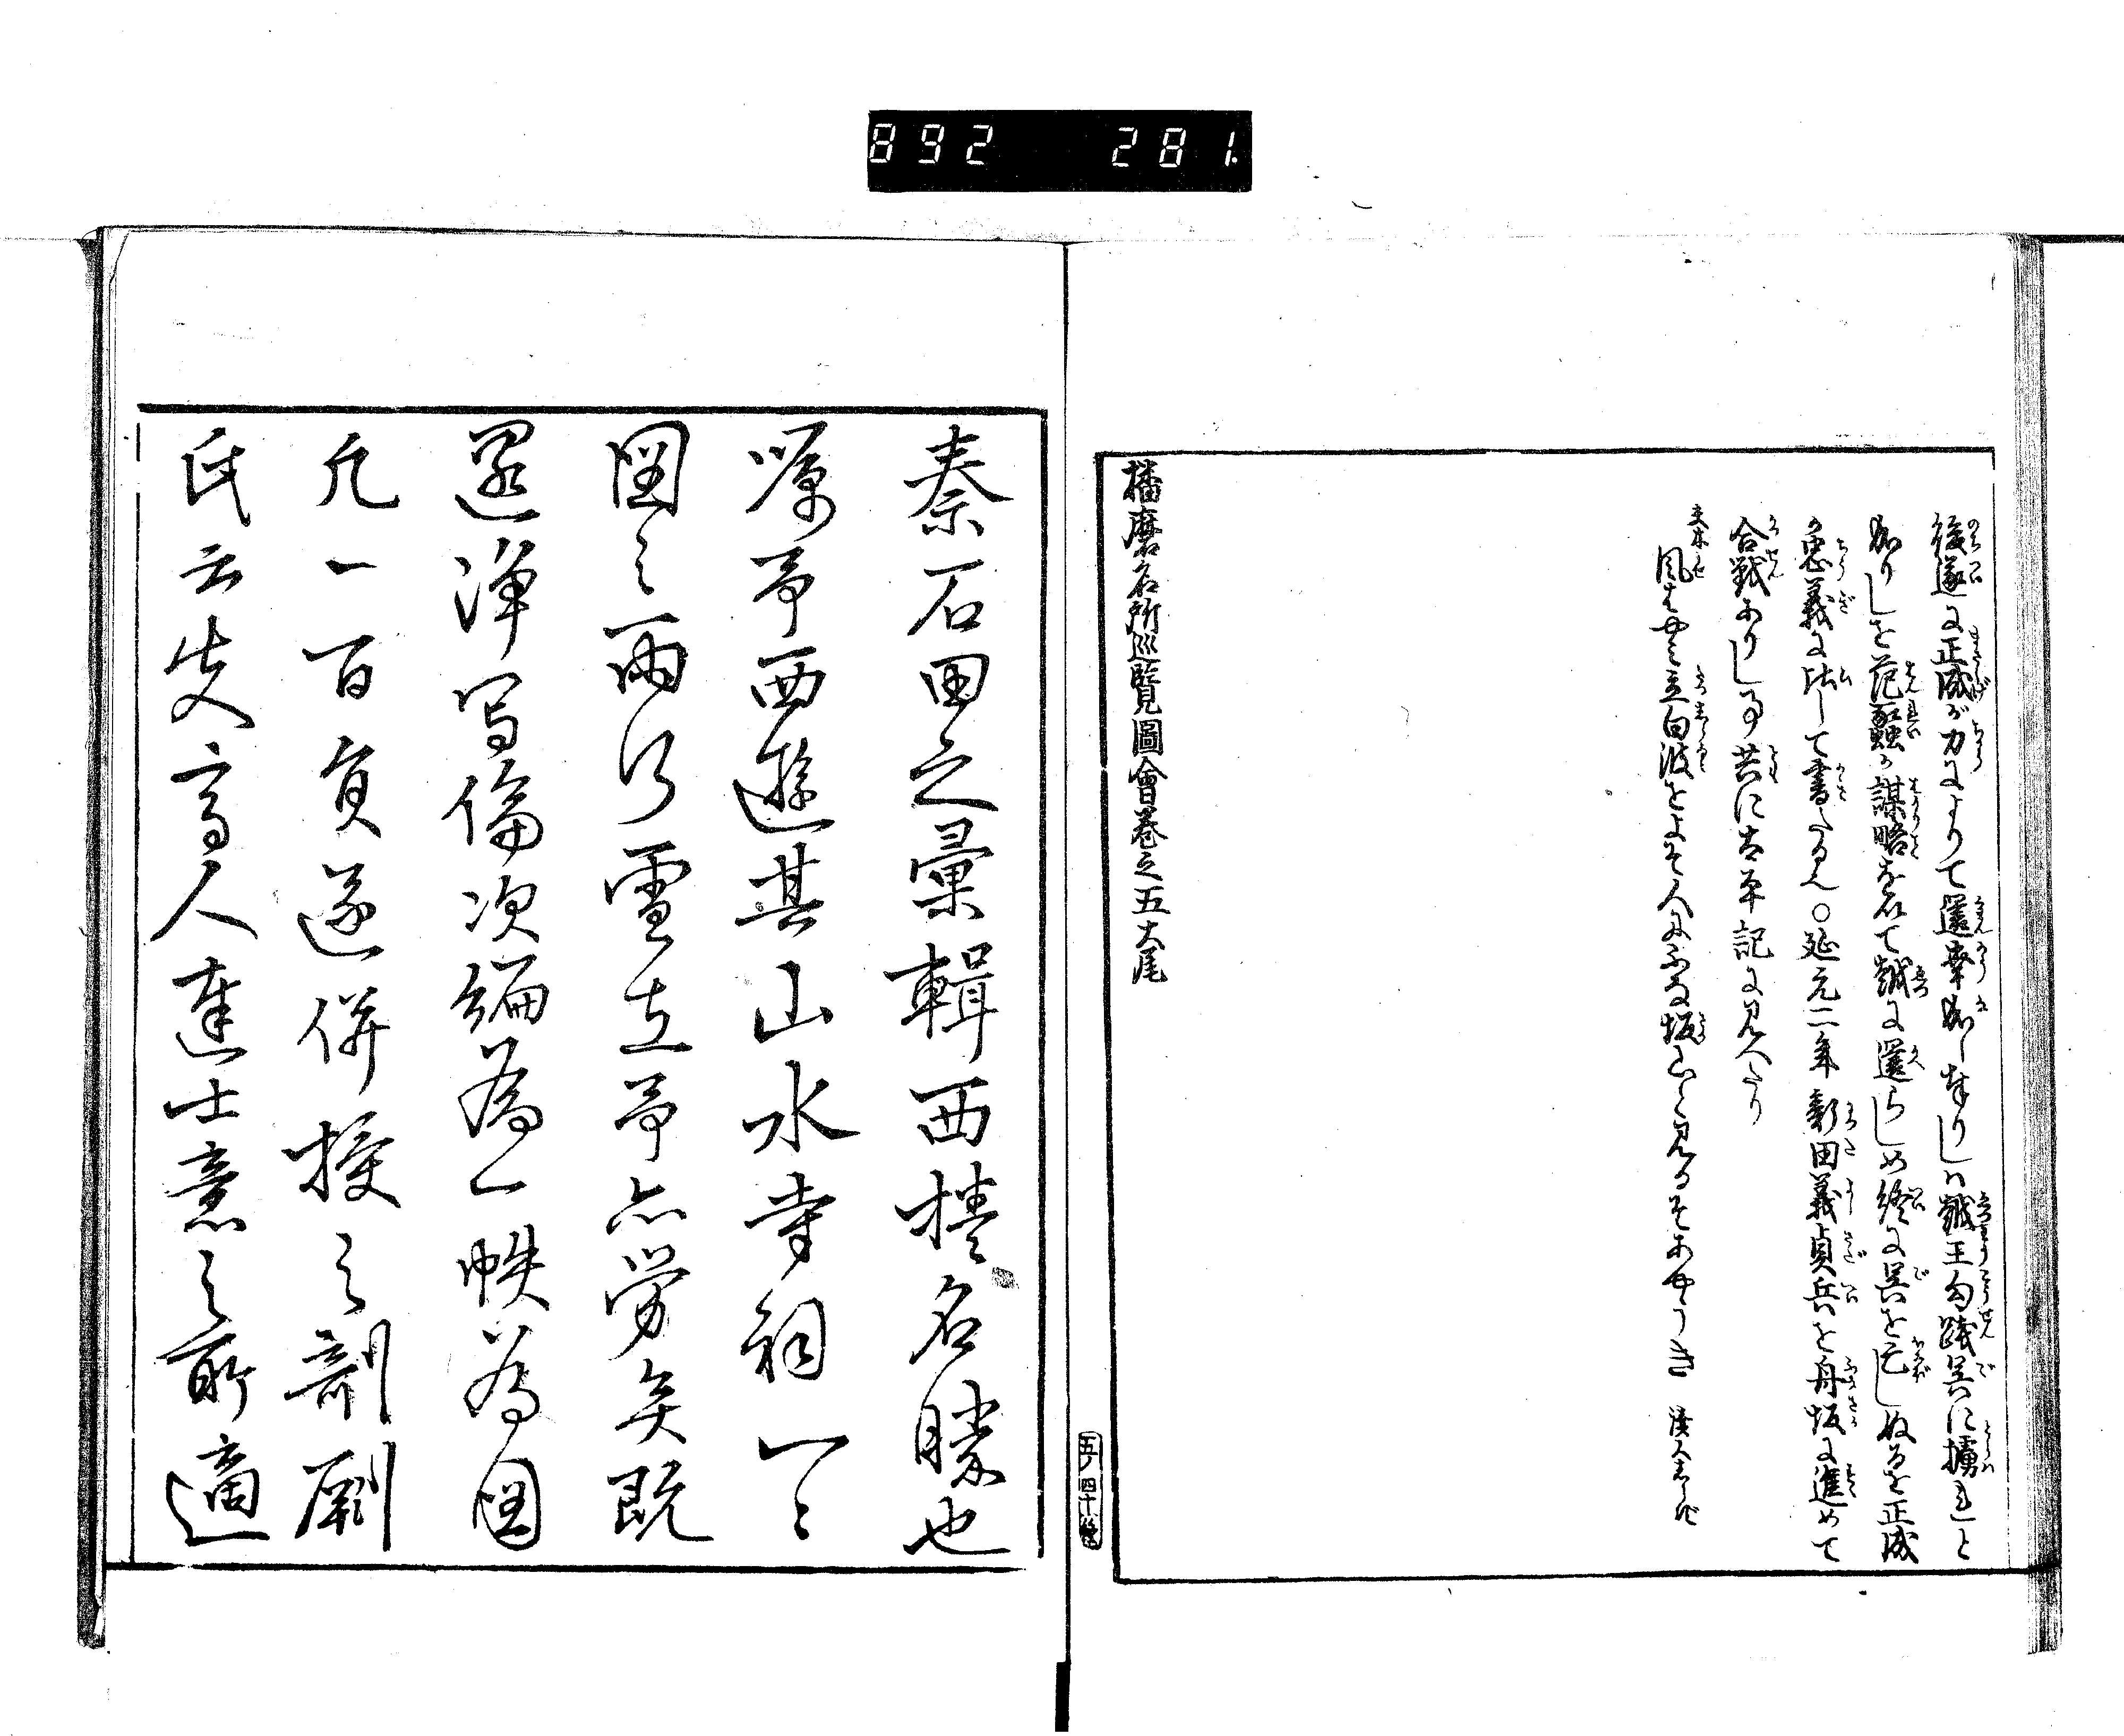 892 281.
後遂に正成が力によりて還幸なし奉りしハ越王勾践呉に擄れと
なりしを范蠡が謀略を以て越に還らしめ終に呉を亡しぬるを正成
忠義に比して書たる也○延元二年新田義貞兵を舟坂に進めて
合戦ありし事共に太平記に見へたり
夫木 風はやミ立白波をよそ人にふな坂山と見るそあやうき
播磨名所巡覧圖會巻之五大尾
五ノ四十終
秦石田之彙輯西播名勝也
嘱予西遊其山水寺祠一々
図之雨行雪立予亦労矣既
還浄写倫次編為一帙為図
凡一百頁遂併授之剞劂
氏云失高人達士意之所適